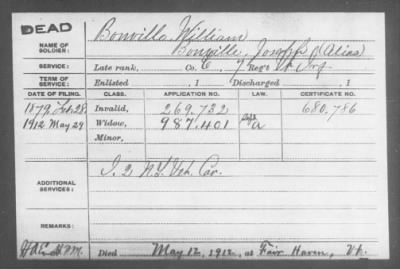 DEAD
NAME OF SOLDIER: Bonvillo, William
Bonville, Joseph (Alias)
SERVICE: Late rank, Co. C, 7 Reg't Vt. Inf.
TERM OF SERVICE: Enlisted , 1 Discharged , 1
DATE OF FILING. CLASS. APPLICATION NO. LAW. CERTIFICATE NO.
1879, Feb. 28 Invalid, 269.732 680.786
1912 May 29 Widow, 987.401
Minor,
ADDITIONAL SERVICES: I. 2 N.Y. Vet. Cav.
REMARKS:
Died May 12, 1912, at Fair Haven, Vt.